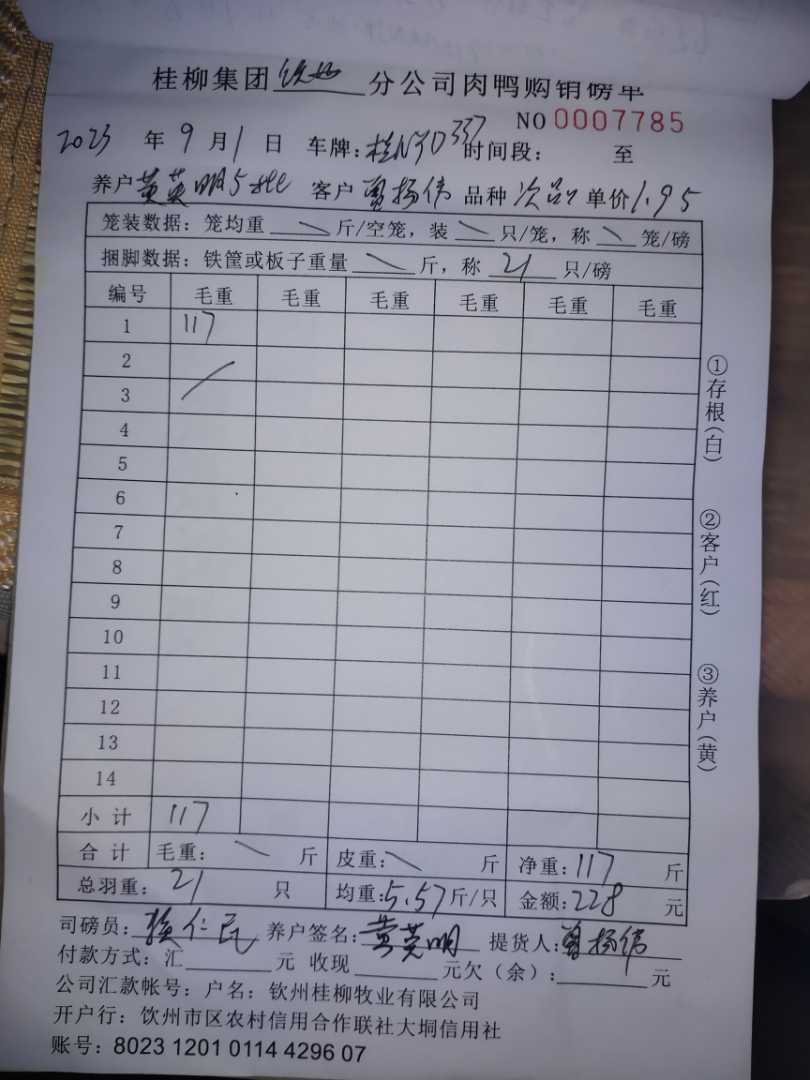 桂柳集团 钦州 分公司肉鸭购销磅单
NO 0007785
2023 年 9 月 1 日 车牌：桂N 337 时间段： 至
养户 黄英明5批 客户 曾扬伟 品种 次品 单价 1.95
笼装数据：笼均重 \ 斤/空笼，装 \ 只/笼，称 \ 笼/磅
捆脚数据：铁筐或板子重量 \ 斤，称 21 只/磅
编号 毛重 毛重 毛重 毛重 毛重 毛重
1 117
2
3
4
5
6
7
8
9
10
11
12
13
14
小计 117
合计 毛重：\ 斤 皮重：\ 斤 净重：117 斤
总羽重：21 只 均重：5.57 斤/只 金额：228 元
司磅员： 仁民 养户签名：黄英明 提货人：曾扬伟
付款方式：汇 元 收现 元欠（余）： 元
公司汇款帐号：户名：钦州桂柳牧业有限公司
开户行：饮州市区农村信用合作联社大垌信用社
账号：8023 1201 0114 4296 07
①存根（白）
②客户（红）
③养户（黄）